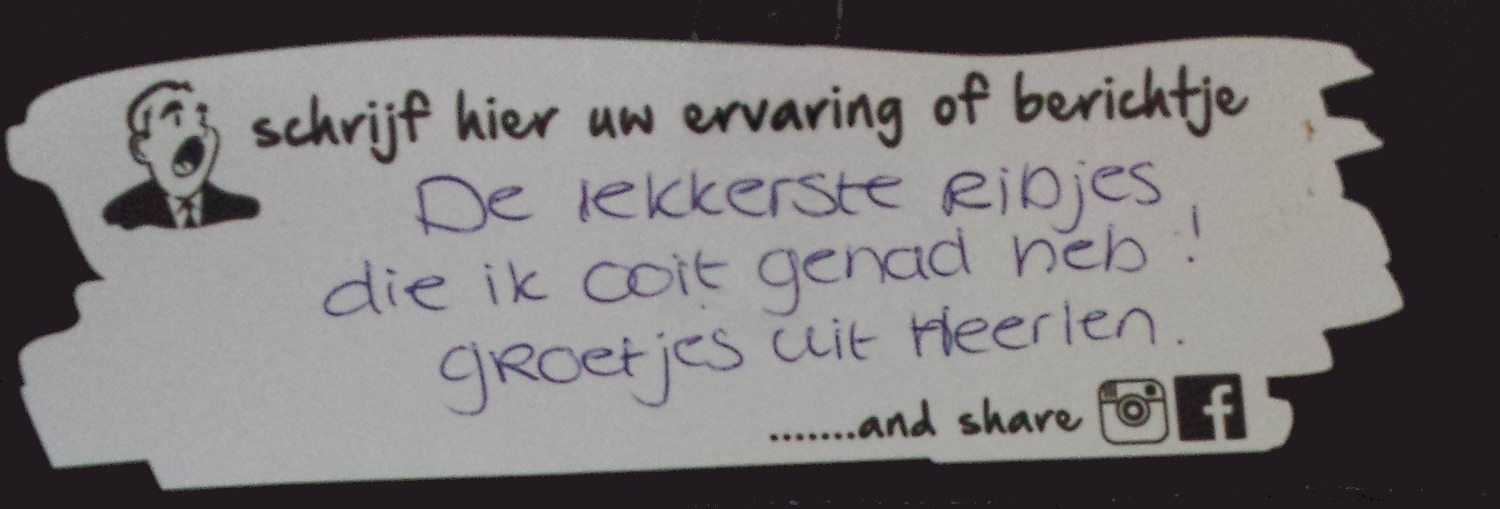 schrijf hier uw ervaring of berichtje
De lekkerste Ribjes
die ik ooit gehad heb !
groetjes uit Heerlen.
.......and share